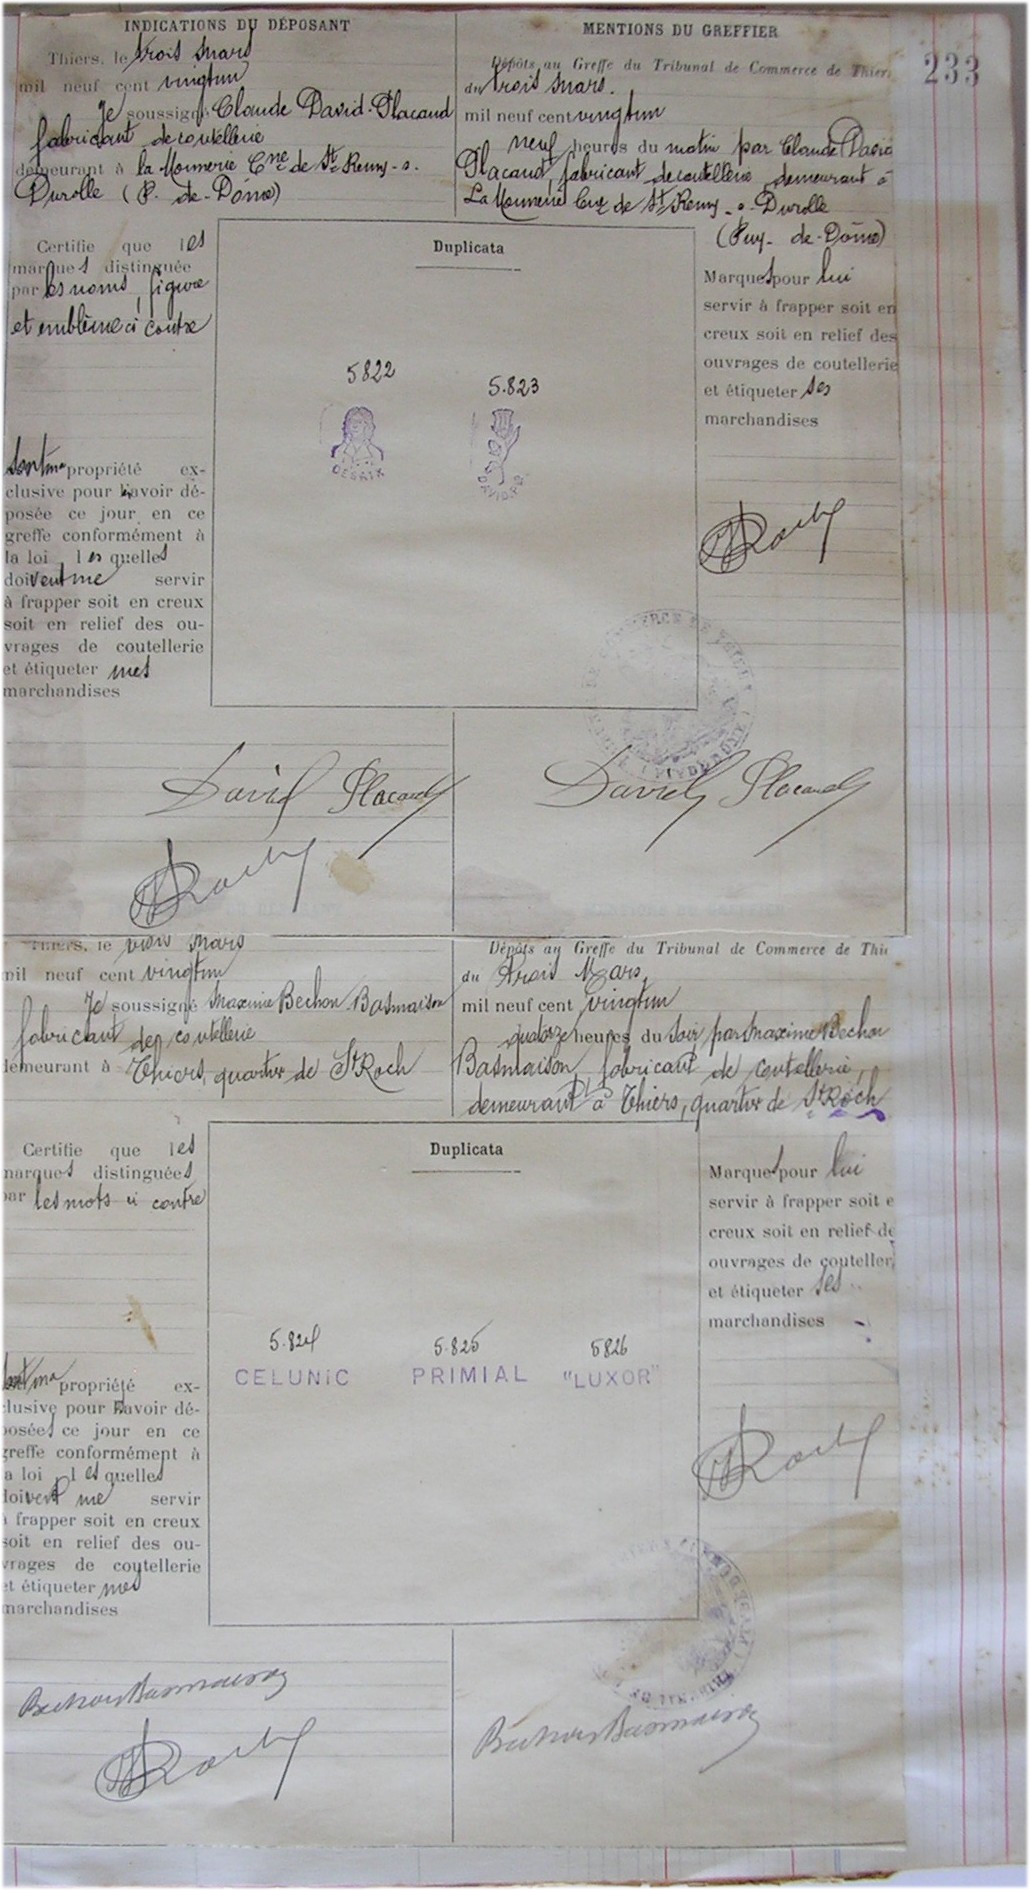 233
INDICATIONS DU DÉPOSANT
Thiers, le trois mars
mil neuf cent vingtun
Je soussigné Claude David-Placaud
fabricant de coutellerie
demeurant à la Monnerie Cne de St Remy-s.
Durolle (P. de-Dôme)
MENTIONS DU GREFFIER
Dépôts au Greffe du Tribunal de Commerce de Thiers
du trois mars.
mil neuf cent vingtun
neuf heures du matin par Claude David
Placaud, fabricant de coutellerie demeurant à
La Monnerie Cne de St Remy-s-Durolle
(Puy-de-Dôme)
Certifie que les
marques distinguée
par les noms, figure
et emblème ci contre
sont ma propriété ex-
clusive pour avoir dé-
posée ce jour en ce
greffe conformément à
la loi lesquelles
doivent me servir
à frapper soit en creux
soit en relief des ou-
vrages de coutellerie
et étiqueter mes
marchandises
Duplicata
5822
DESAIX
5.823
DAVID.P.
Marques pour lui
servir à frapper soit en
creux soit en relief des
ouvrages de coutellerie
et étiqueter ses
marchandises
David Placaud
David Placaud
Thiers, le trois mars
mil neuf cent vingtun
Je soussigné Maxime Bechon Basmaison
fabricant de coutellerie
demeurant à Thiers, quartier de St Roch
Dépôts au Greffe du Tribunal de Commerce de Thi
du trois Mars,
mil neuf cent vingtun
quatorze heures du soir par Maxime Bechon
Basmaison fabricant de coutellerie,
demeurant à Thiers, quartier de St Roch
Certifie que les
marques distinguées
par les mots ci contre
sont ma propriété ex-
clusive pour avoir dé-
posées ce jour en ce
greffe conformément à
la loi lesquelles
doivent me servir
à frapper soit en creux
soit en relief des ou-
vrages de coutellerie
et étiqueter mes
marchandises
Duplicata
5.824 5.825 5826
CELUNIC PRIMIAL "LUXOR"
Marques pour lui
servir à frapper soit e
creux soit en relief de
ouvrages de couteller
et étiqueter ses
marchandises
Bechon Basmaison
Bechon Basmaison